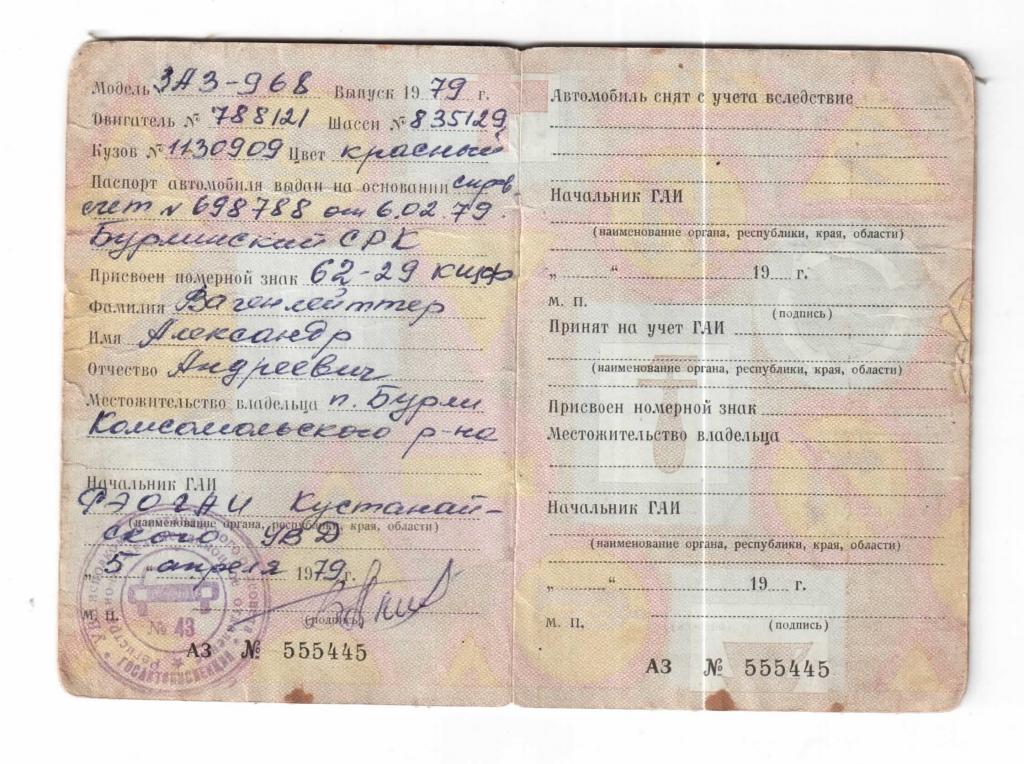 Модель ЗАЗ-968 Выпуск 1979 г.
Двигатель № 788121 Шасси № 835129
Кузов № 1130909 Цвет красный
Паспорт автомобиля выдан на основании справ
счет N 698788 от 6.02.79.
Бурлинский СРК
Присвоен номерной знак 62-29 кщф
Фамилия Вагенлейттер
Имя Александр
Отчество Андреевич
Местожительство владельца п. Бурли
Комсомольского р-на
Начальник ГАИ
РЭО ГАИ Кустанай-
(наименование органа, республики, края, области)
ского УВД
„5“ апреля 1979 г.
М. П.
(подпись)
№ 43
ГОСАВТОИНСПЕКЦИЯ
АЗ № 555445
Автомобиль снят с учета вследствие
Начальник ГАИ
(наименование органа, республики, края, области)
„ “ 19 г.
М. П.
(подпись)
Принят на учет ГАИ
(наименование органа, республики, края, области)
Присвоен номерной знак
Местожительство владельца
Начальник ГАИ
(наименование органа, республики, края, области)
„ “ 19 г.
М. П.
(подпись)
АЗ № 555445